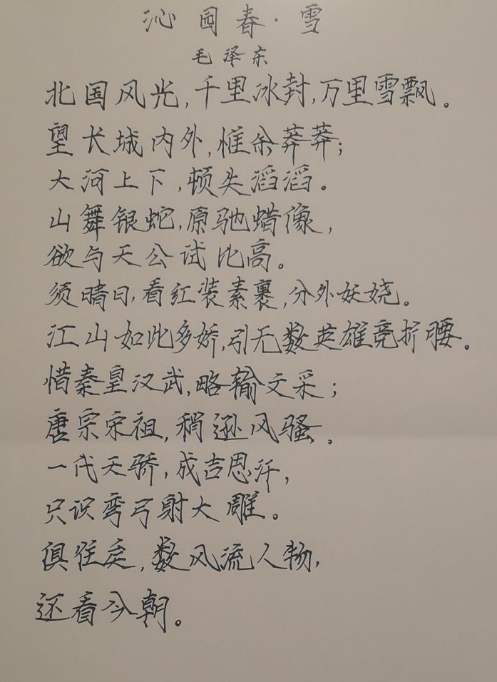 沁园春·雪
毛泽东
北国风光,千里冰封,万里雪飘。
望长城内外,惟余莽莽;
大河上下,顿失滔滔。
山舞银蛇,原驰蜡像,
欲与天公试比高。
须晴日,看红装素裹,分外妖娆。
江山如此多娇,引无数英雄竞折腰。
惜秦皇汉武,略输文采;
唐宗宋祖,稍逊风骚。
一代天骄,成吉思汗,
只识弯弓射大雕。
俱往矣,数风流人物,
还看今朝。